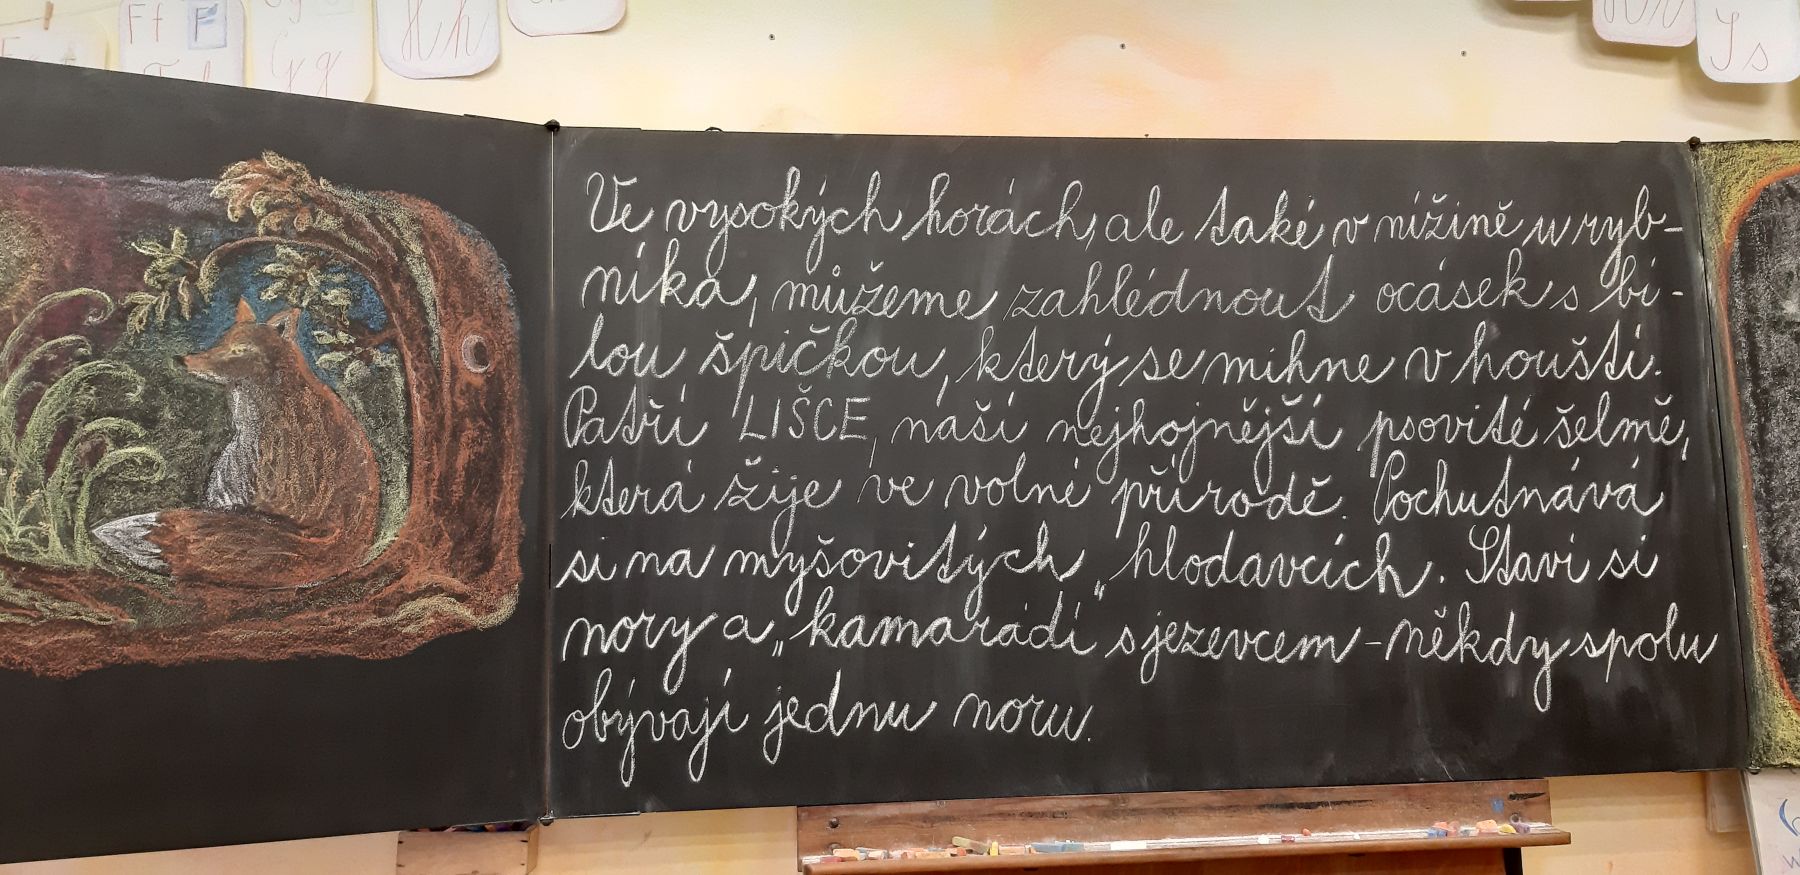 Ff F
G g
H h
S s
Ve vysokých horách, ale také v nížině u ryb-
níka, můžeme zahlédnout ocásek s bí-
lou špičkou, který se mihne v houští.
Patří LIŠCE, naší nejhojnější psovité šelmě,
která žije ve volné přírodě. Pochutnává
si na myšovitých hlodavcích. Staví si
nory a „kamarádí“ s jezevcem - někdy spolu
obývají jednu noru.